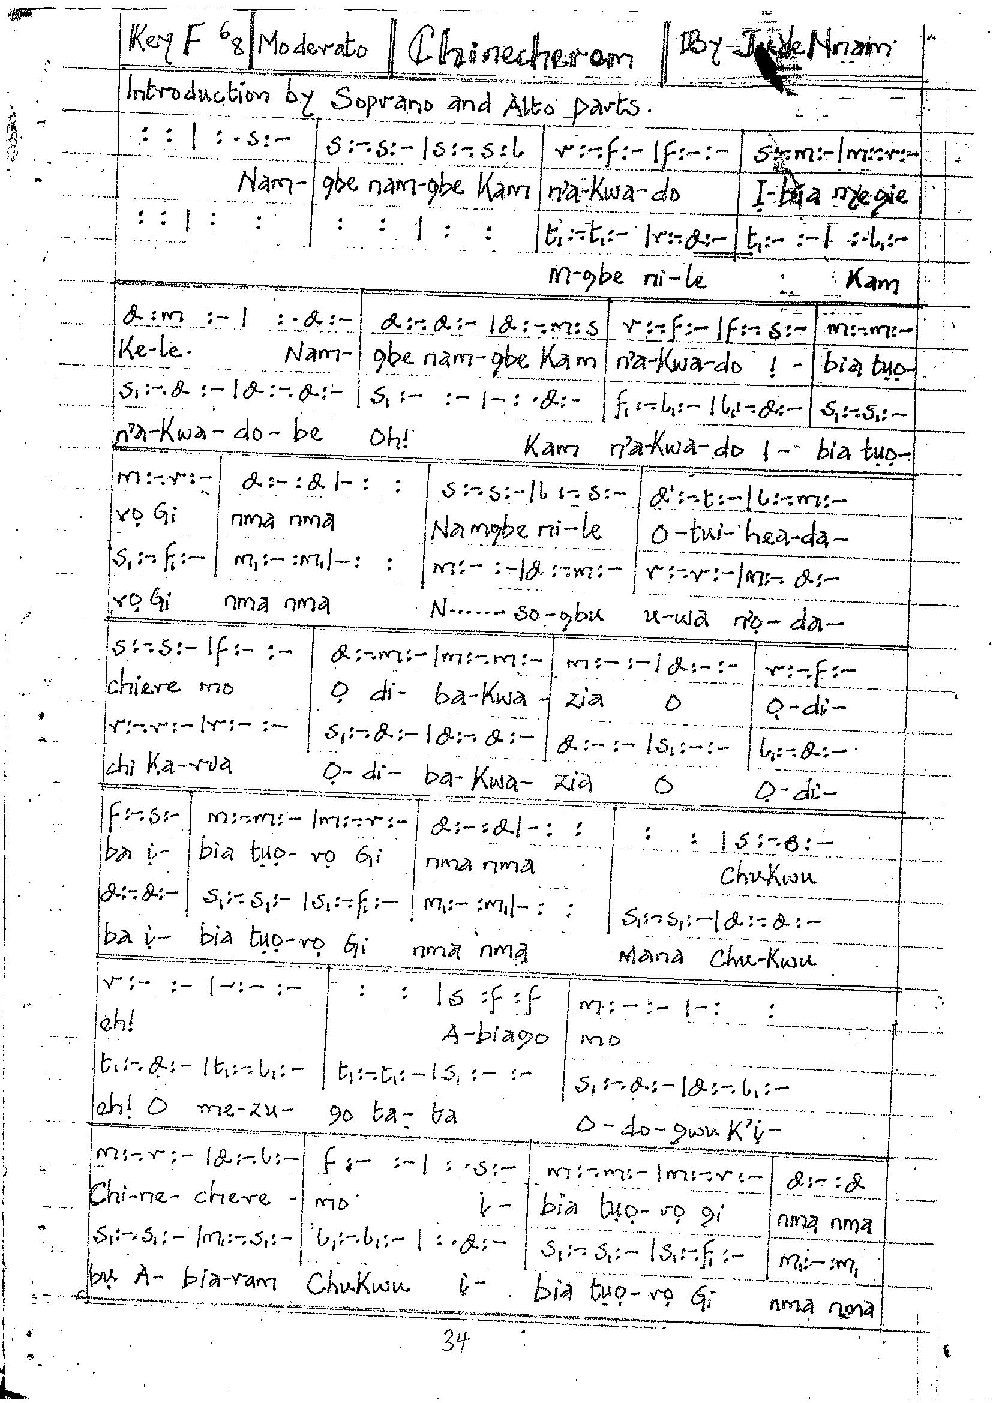 Key F 6/8 | Moderato | Chinecherem | By Jude Nnam
Introduction by Soprano and Alto parts.
: : | : .s:- | s:-.s:- |s:-.s:l | r:-.f:- |f:-:- | s:-.m:- |m:-.r:-
Nam- gbe nam-gbe Kam n'a-Kwa-do Ị-bịa megie
: : | : : | : : | : : | t₁:-.t₁:- |r:-.d:- | t₁:- :-| :-.l₁:-
m-gbe ni-le Kam
d:m :-| :-.d:- | d:-.d:- |d:-.m:s | r:-.f:- |f:-.s:- | m:-.m:-
Ke-le. Nam- gbe nam-gbe Kam n'a-Kwa-do I- bia tụọ-
s₁:-.d:- |d:-.d:- | s₁:- :-|-:.d:- | f₁:-.l₁:- |l₁:-.d:- | s₁:-.s₁:-
n'a-Kwa-do-be Oh! Kam n'a-Kwa-do I- bia tụọ-
m:-.r:- | d:-:d|-: : | s:-.s:-|l:-.s:- | d':-.t:-|l:-.m:-
rọ Gi nma nma Namgbe ni-le O-tui-hea-da-
s₁:-.f₁:- | m₁:-:m₁|-: : | m:- :-|d:-.m:- | r:-.r:-|m:-.d:-
rọ Gi nma nma N------so-gbu u-wa n'ọ-da-
s:-.s:- |f:- :- | d:-.m:-|m:-.m:- | m:-:-|d:-: | r:-.f:-
chiere mo Ọ di- ba-Kwa- zia O Ọ-di-
r:-.r:- |r:- :- | s₁:-.d:-|d:-.d:- | d:-: |s₁:-:- | l₁:-.d:-
chi Ka-rua Ọ-di- ba-Kwa- zia O Ọ-di-
f:-.s:- | m:-.m:- |m:-.r:- | d:-:d|-: : | : : |s:-.s:-
ba ị- bia tụọ-rọ Gi nma nma Chukwu
d:-.d:- | s₁:-.s₁:- |s₁:-.f₁:- | m₁:-:m₁|-: : | s₁:-.s₁:-|d:-.d:-
ba ị- bia tụọ-rọ Gi nma nma Mana Chu-Kwu
r:- :- |-:-:- | : : |s :f :f | m:-:- |-: :
eh! A-biago mo
t₁:-.d:- |t₁:-.l₁:- | t₁:-.t₁:-|s₁:- :- | s₁:-.d:-|d:-.l₁:-
eh! O me-zu- go ta-ta O-do-gwu K'ị-
m:-.r:- |d:-.l:- | f:- :-| :.s:- | m:-.m:- |m:-.r:- | d:-:d
Chi-ne-chere- mo ị- bia tụọ-rọ gi nma nma
s₁:-.s₁:- |m:-.s₁:- | l₁:-.l₁:-| :.d:- | s₁:-.s₁:- |s₁:-.f₁:- | m₁:-:m₁
bụ A-bia-ram Chukwu ị- bia tụọ-rọ Gi nma nma
34